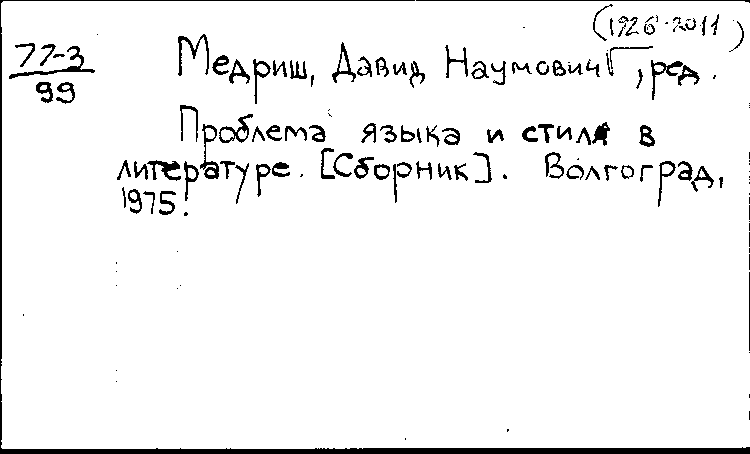 (1926-2011)
77-3
99
Медриш, Давид Наумович, ред.
Проблема языка и стиля в
литературе. [Сборник]. Волгоград,
1975.